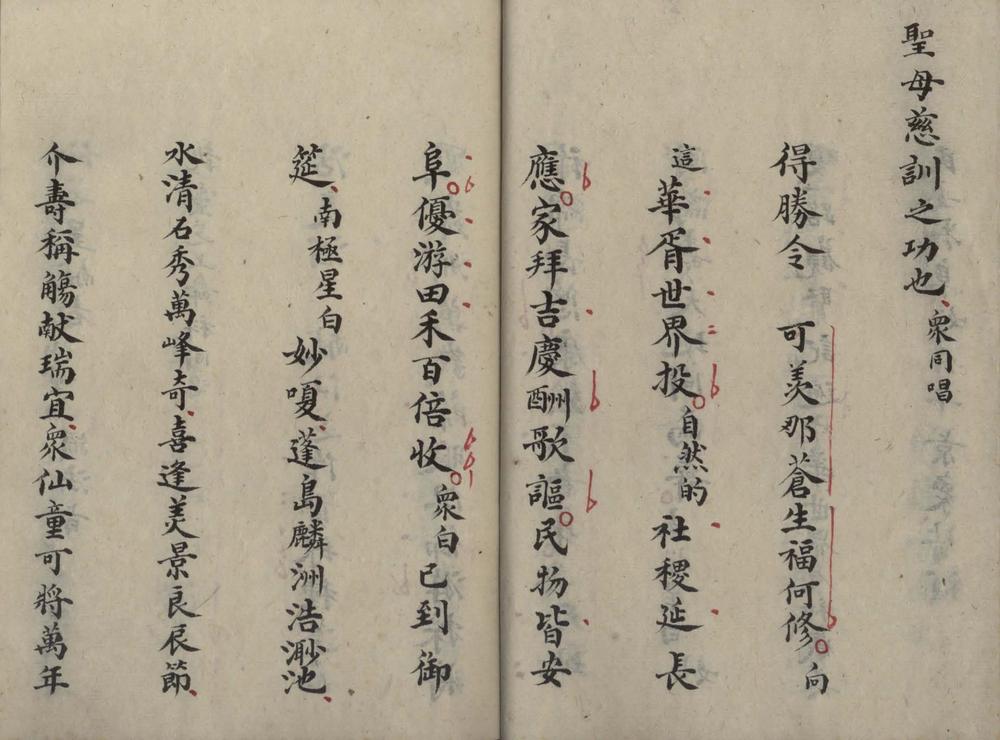 聖母慈訓之功也、衆同唱
得勝令 可羨那蒼生福何修。向
這華胥世界投。自然的社稷延長
應。家拜吉慶酬歌謳。民物皆安
阜。優游田禾百倍收。衆白已到御
筵、南極星白妙嗄、蓬島麟洲浩渺池、
水清石秀萬峰奇、喜逢美景良辰節、
介壽稱觴献瑞宜、衆仙童可將萬年